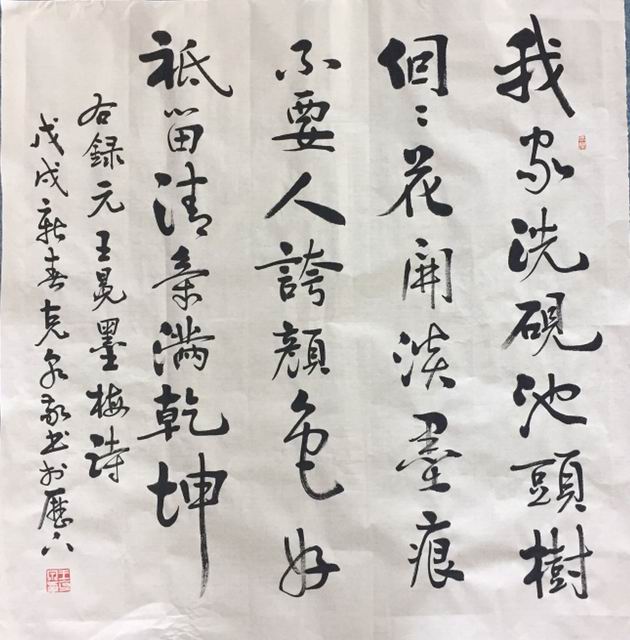 我家洗硯池頭樹
個々花開淡墨痕
不要人誇顏色好
祗留清氣滿乾坤
右錄元王冕墨梅詩
戊戌新春克泉敬书於歷下